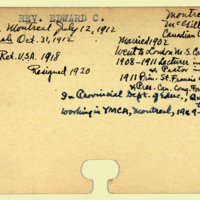 REV. EDWARD C.
Montreal July 12, 1912
Oct. 31, 1912
Ret. U.S.A. 1918
Resigned 1920
Montreal
McGill
Canadian C
Married 1902
Went to London M.S. Co
1908-1911 Lecturer in
& Pastor in
1911 Prin. St. Francis
& Pres. Can. Cong. For
In Provincial Dept. of Educ., Que
Working in YMCA, Montreal, 1929-